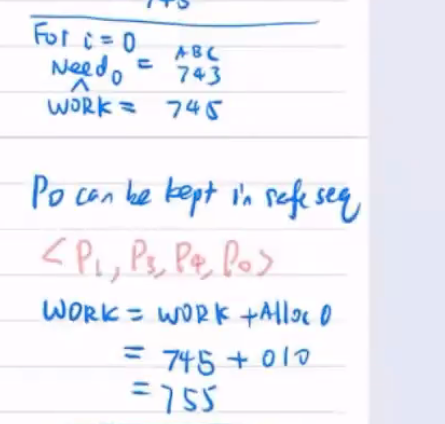 745
For i = 0
ABC
Need₀ = 743
^
WORK = 745
P0 can be kept in safe seq
<P₁, P₃, P₄, P₀>
WORK = WORK + Alloc 0
= 745 + 010
= 755